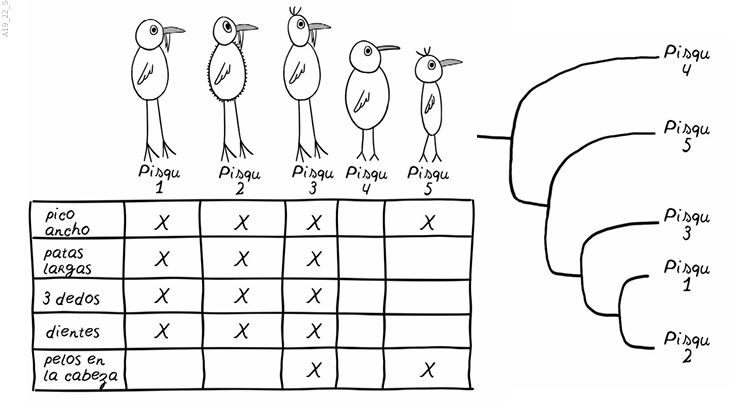 A19_22_5
Pisqu 1
Pisqu 2
Pisqu 3
Pisqu 4
Pisqu 5
pico ancho X X X X
patas largas X X X
3 dedos X X X
dientes X X X
pelos en la cabeza X X
Pisqu 4
Pisqu 5
Pisqu 3
Pisqu 1
Pisqu 2